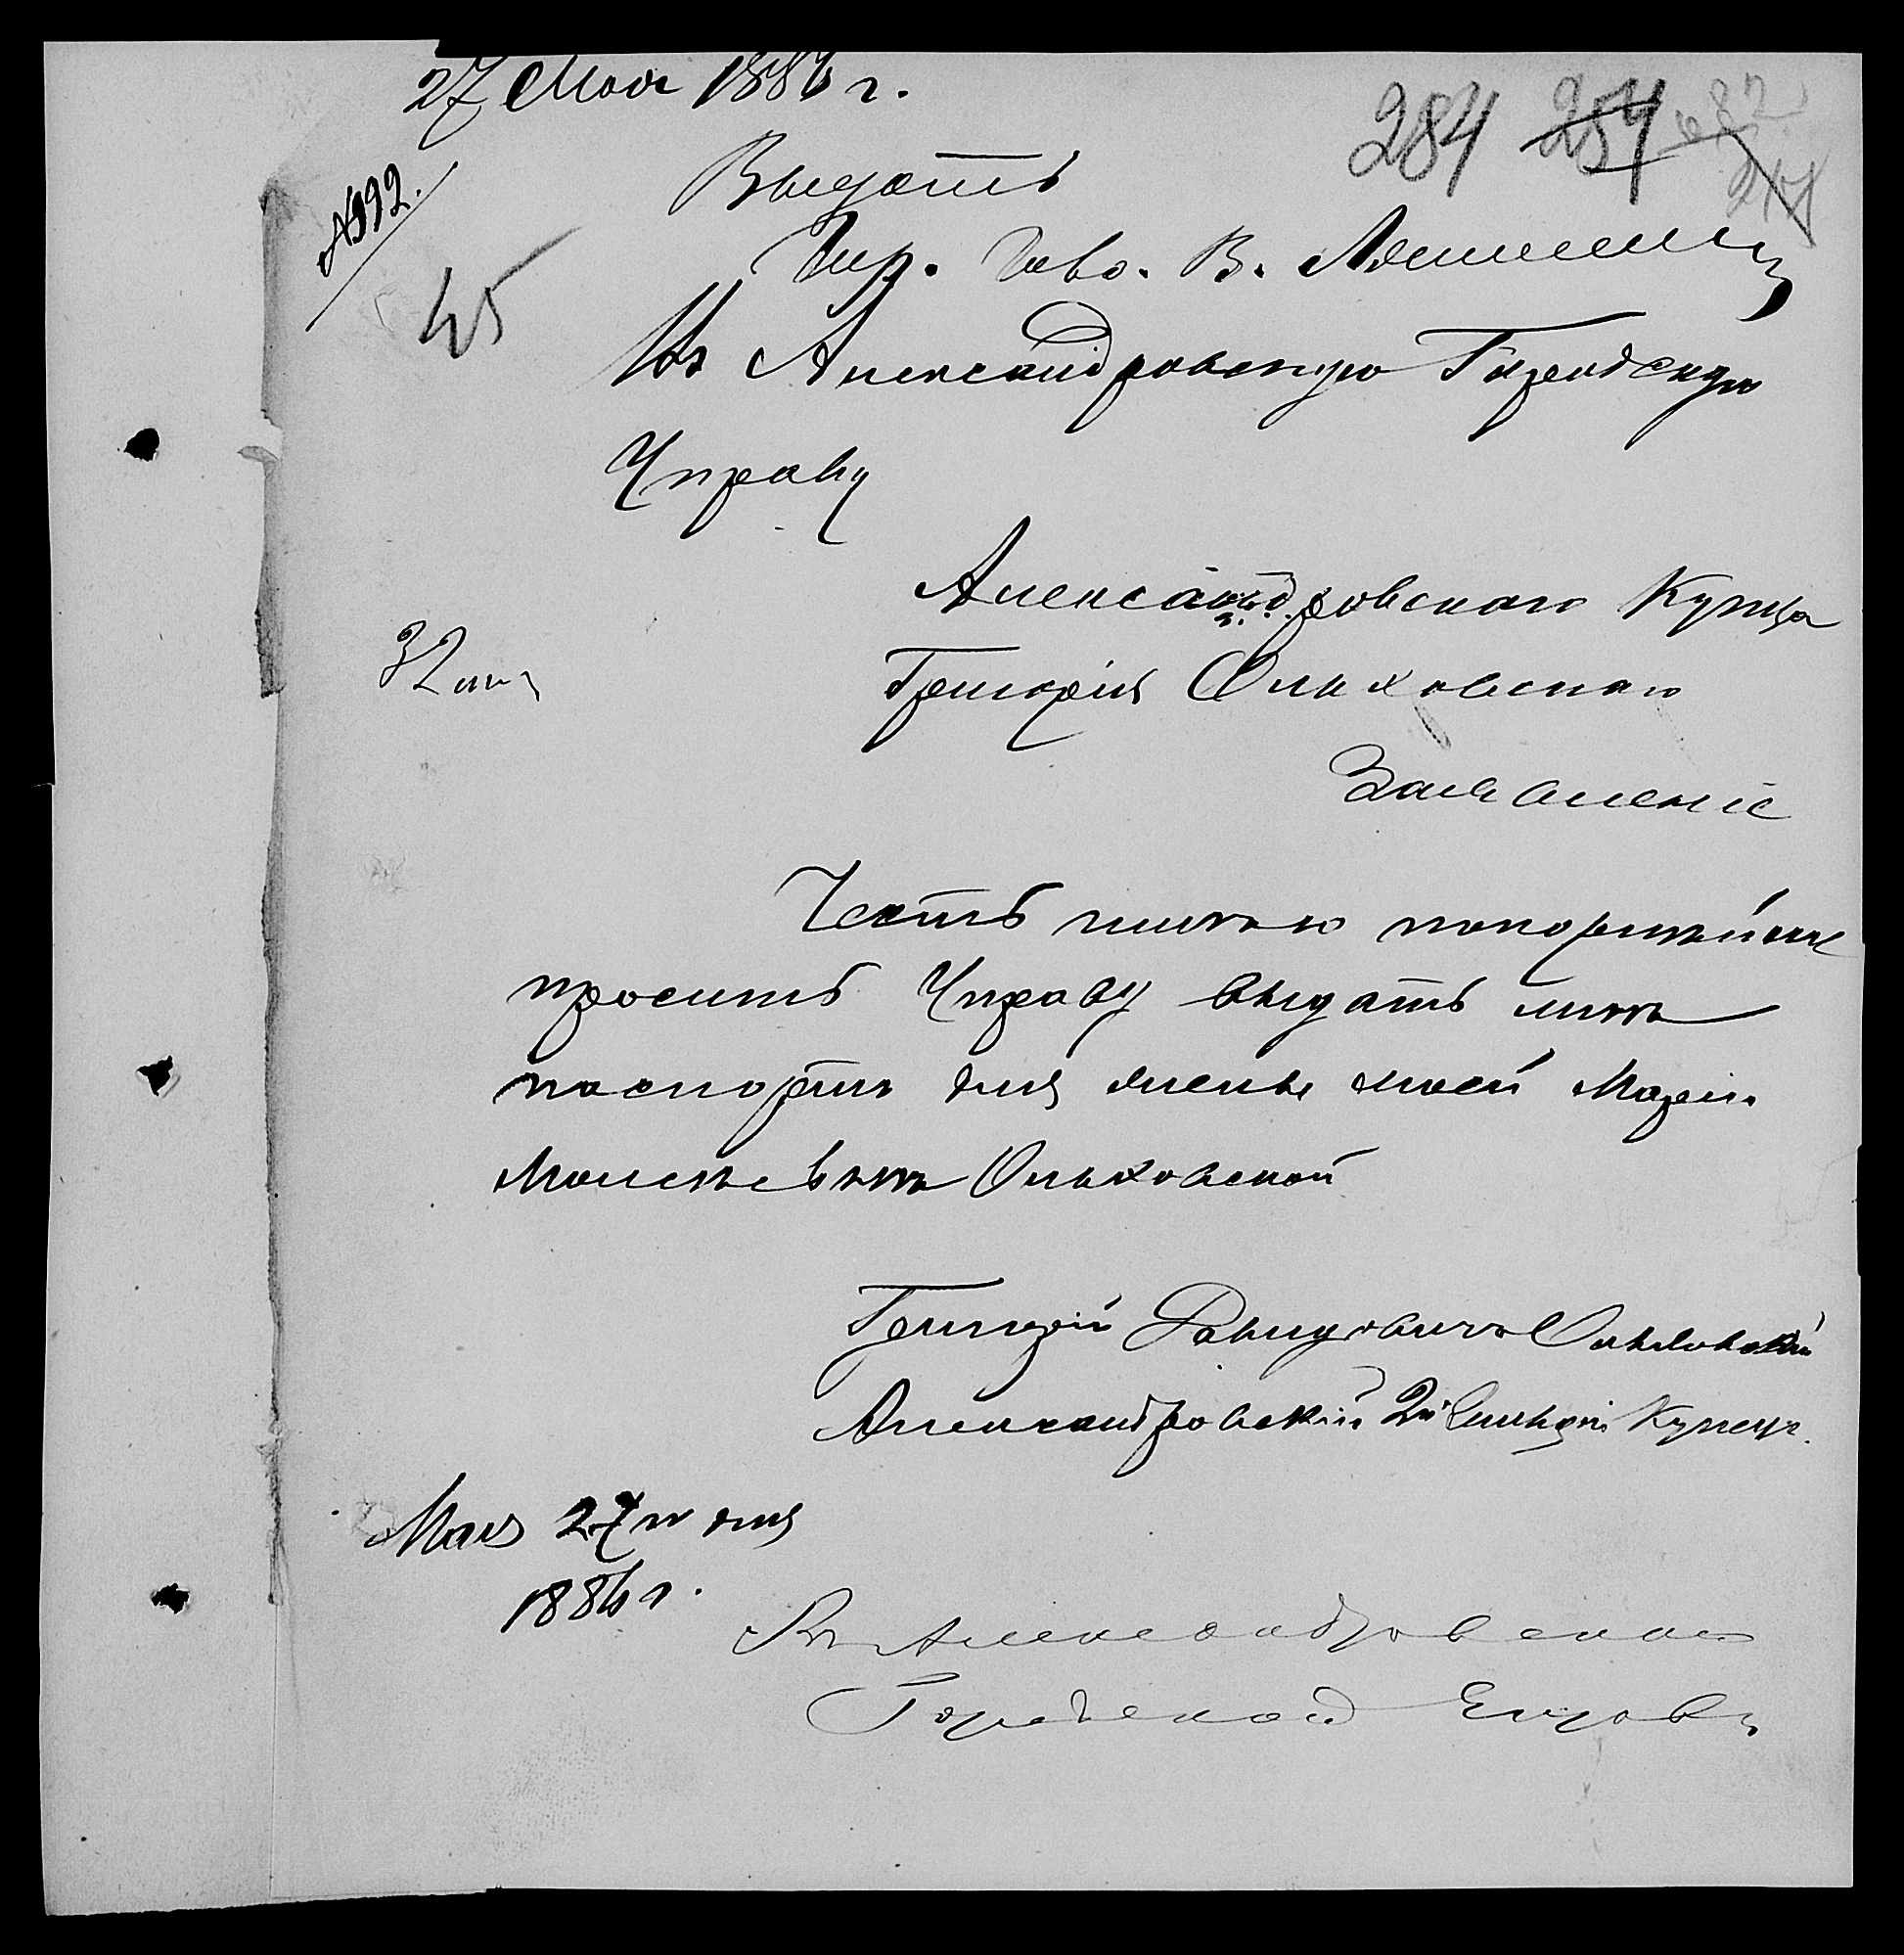 27 Мая 1886 г.
284 254
№ 992.
Выдать
Гор. Голо. В. Лятошин
45
Въ Александровскую Городскую
Управу
Александровскаго Купца
32 лит
Григорія Ольховскаго
Заявленіе
Честь имѣю покорнѣйше
просить Управу выдать мнѣ
паспортъ для жены моей Маріи
Моисѣевнѣ Ольховской
Григорій Давидовичъ Ольховскій
Александровскій 2й Гильдіи Купецъ.
Мая 27го дня
1886 г.
Въ Александровскою
Городской Управы